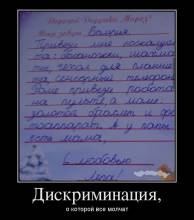 Дорогой Дедушка Мороз!
Меня зовут Валерия
Привези мне пожалуйс
та: босоножки,
та, чехол для планше
та, сенсорный телефон.
Папе привези робота
на пульте, а маме
золотой браслет и фо
тоаппарат. А у папы
есть мама,
С любовью
Лера!
Дискриминация,
о которой все молчат